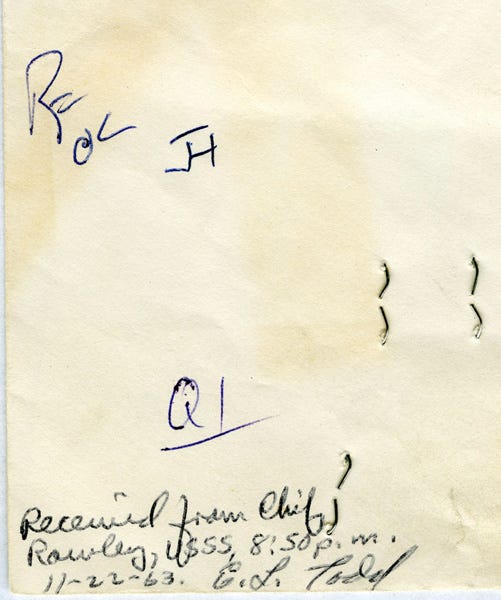 RF
JH
Q1
Received from Chief,
Rowley, USSS, 8:50 p.m.
11-22-63. E. L. Todd